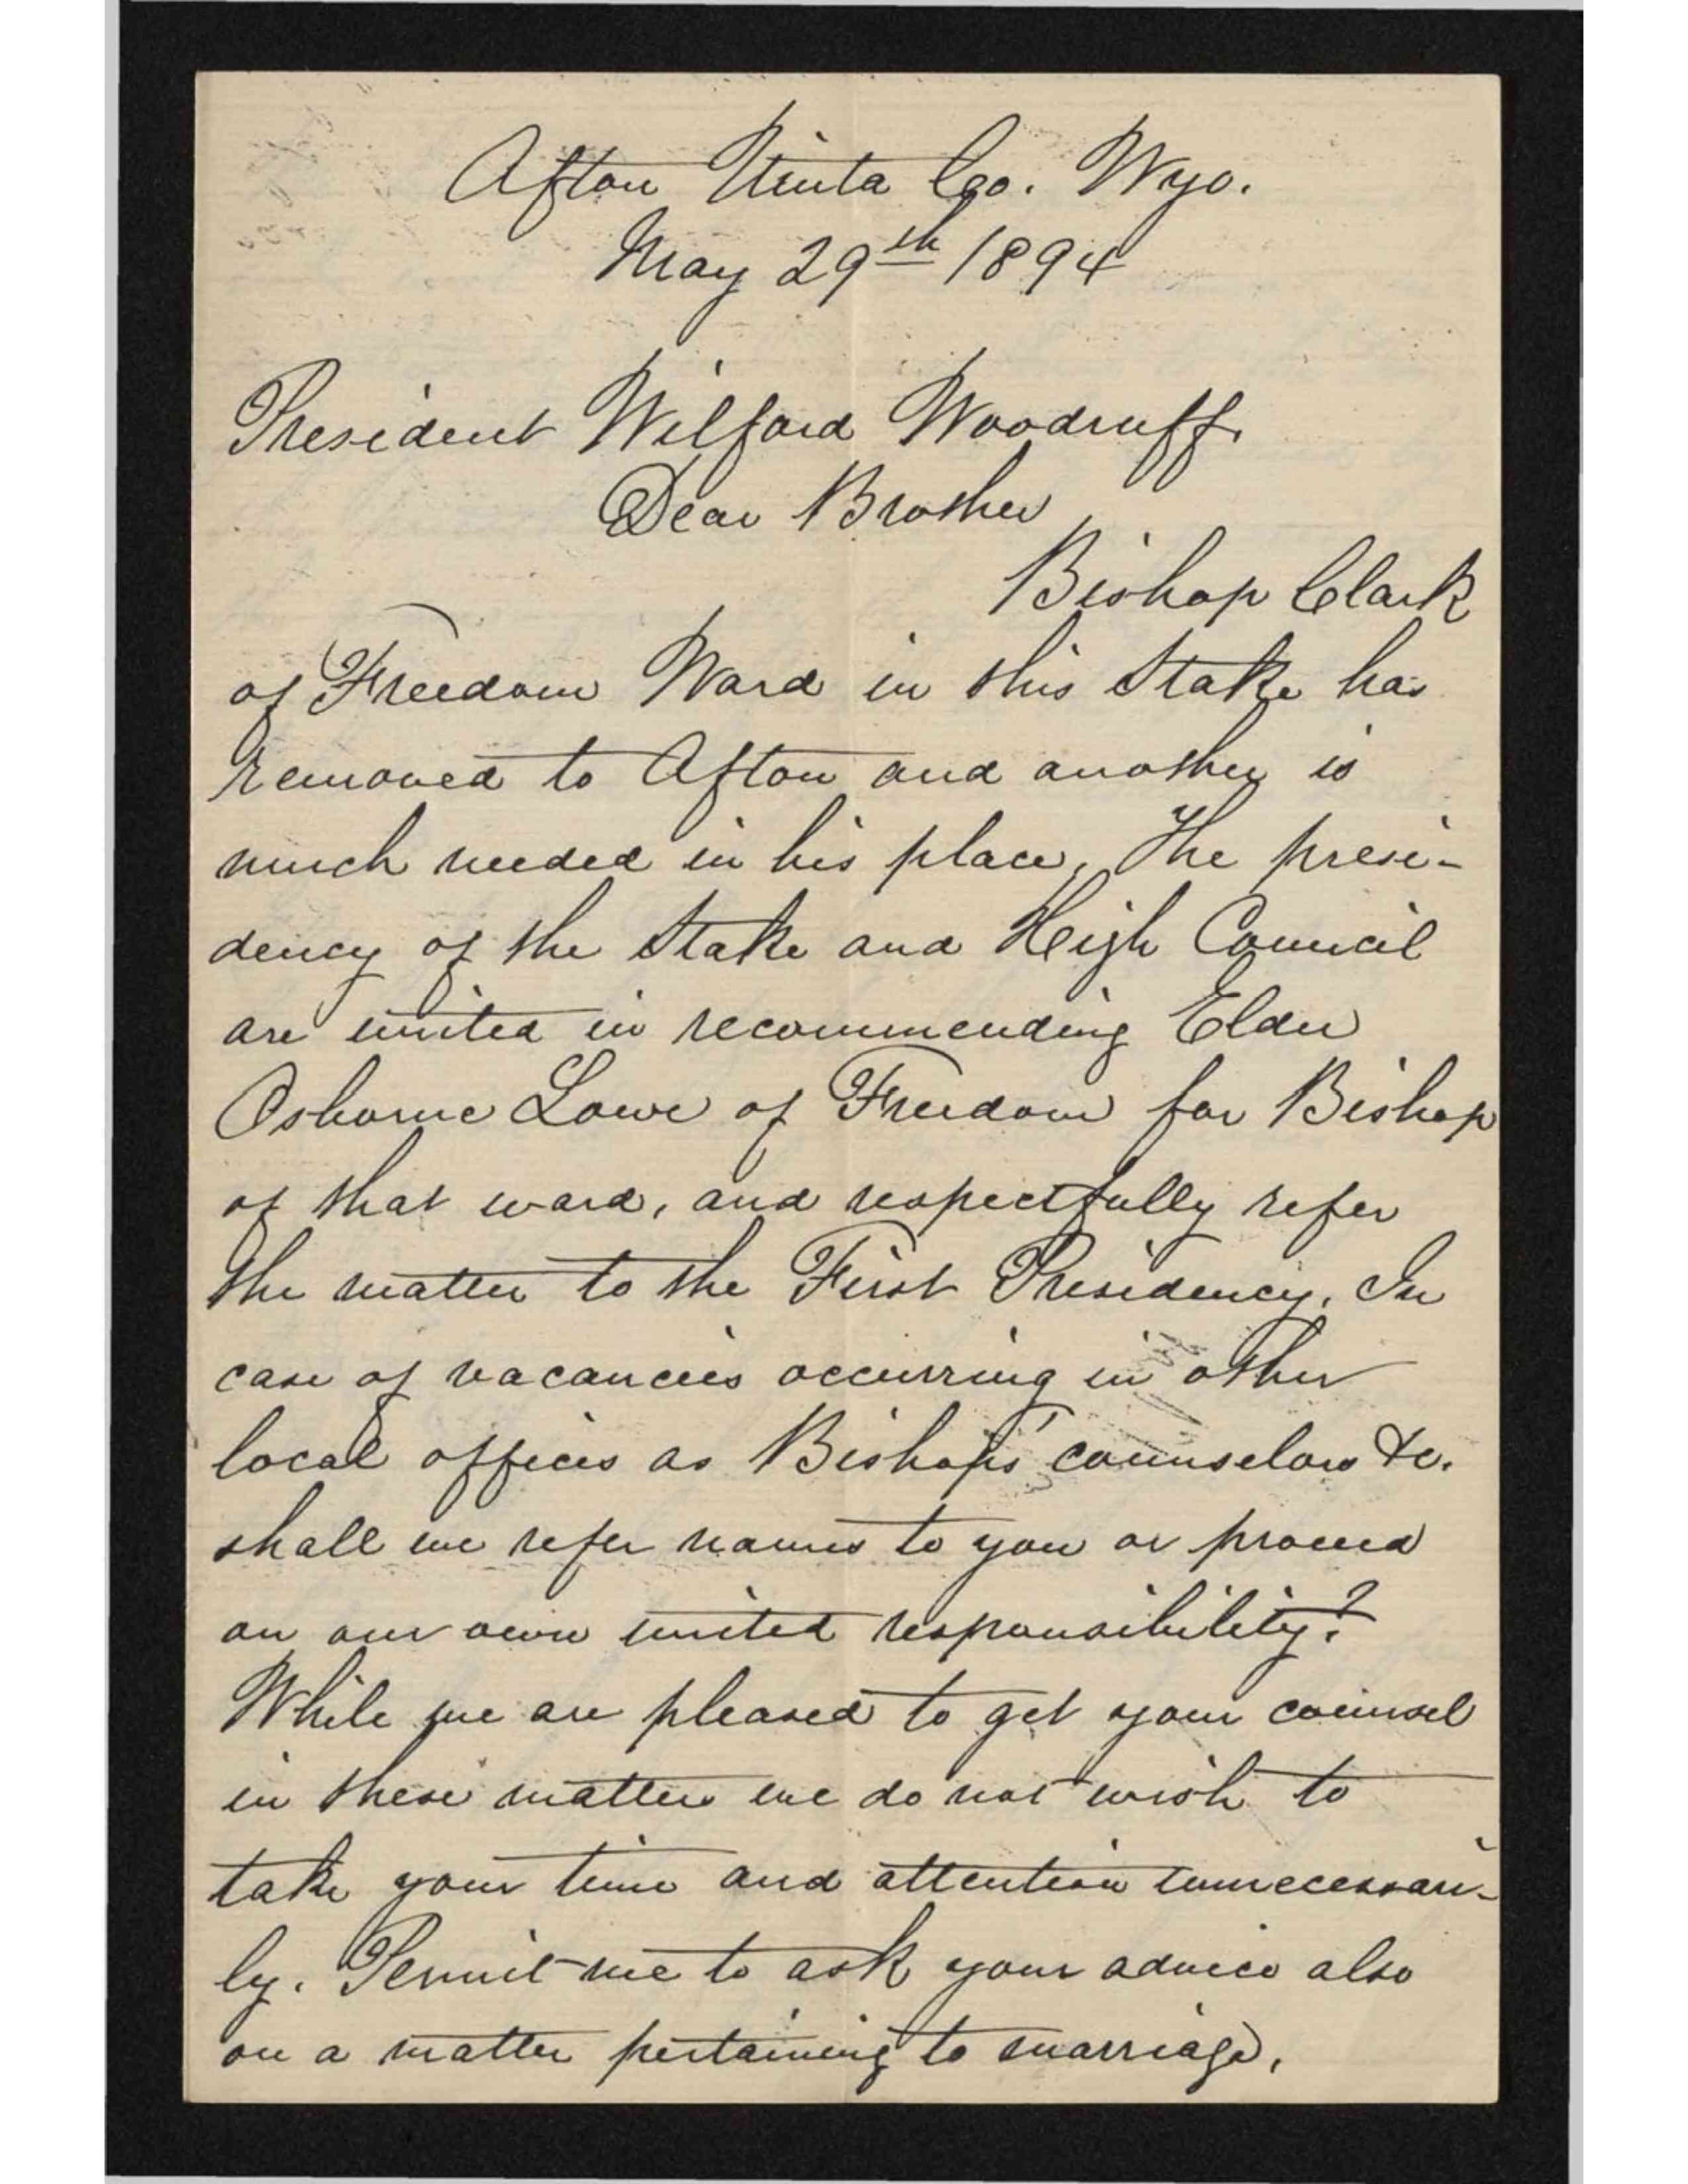 Afton Uinta Co. Wyo.
May 29th 1894
President Wilford Woodruff,
Dear Brother
Bishop Clark
of Freedom Ward in this Stake has
removed to Afton and another is
much needed in his place, The presi-
dency of the Stake and High Council
are united in recommending Elder
Osborne Lowe of Freedom for Bishop
of that ward, and respectfully refer
the matter to the First Presidency. In
case of vacancies occurring in other
local offices as Bishops' counselors &c.
shall we refer names to you or proceed
on our own united responsibility?
While we are pleased to get your counsel
in these matters we do not wish to
take your time and attention unnecessari-
ly. Permit me to ask your advice also
on a matter pertaining to marriage,